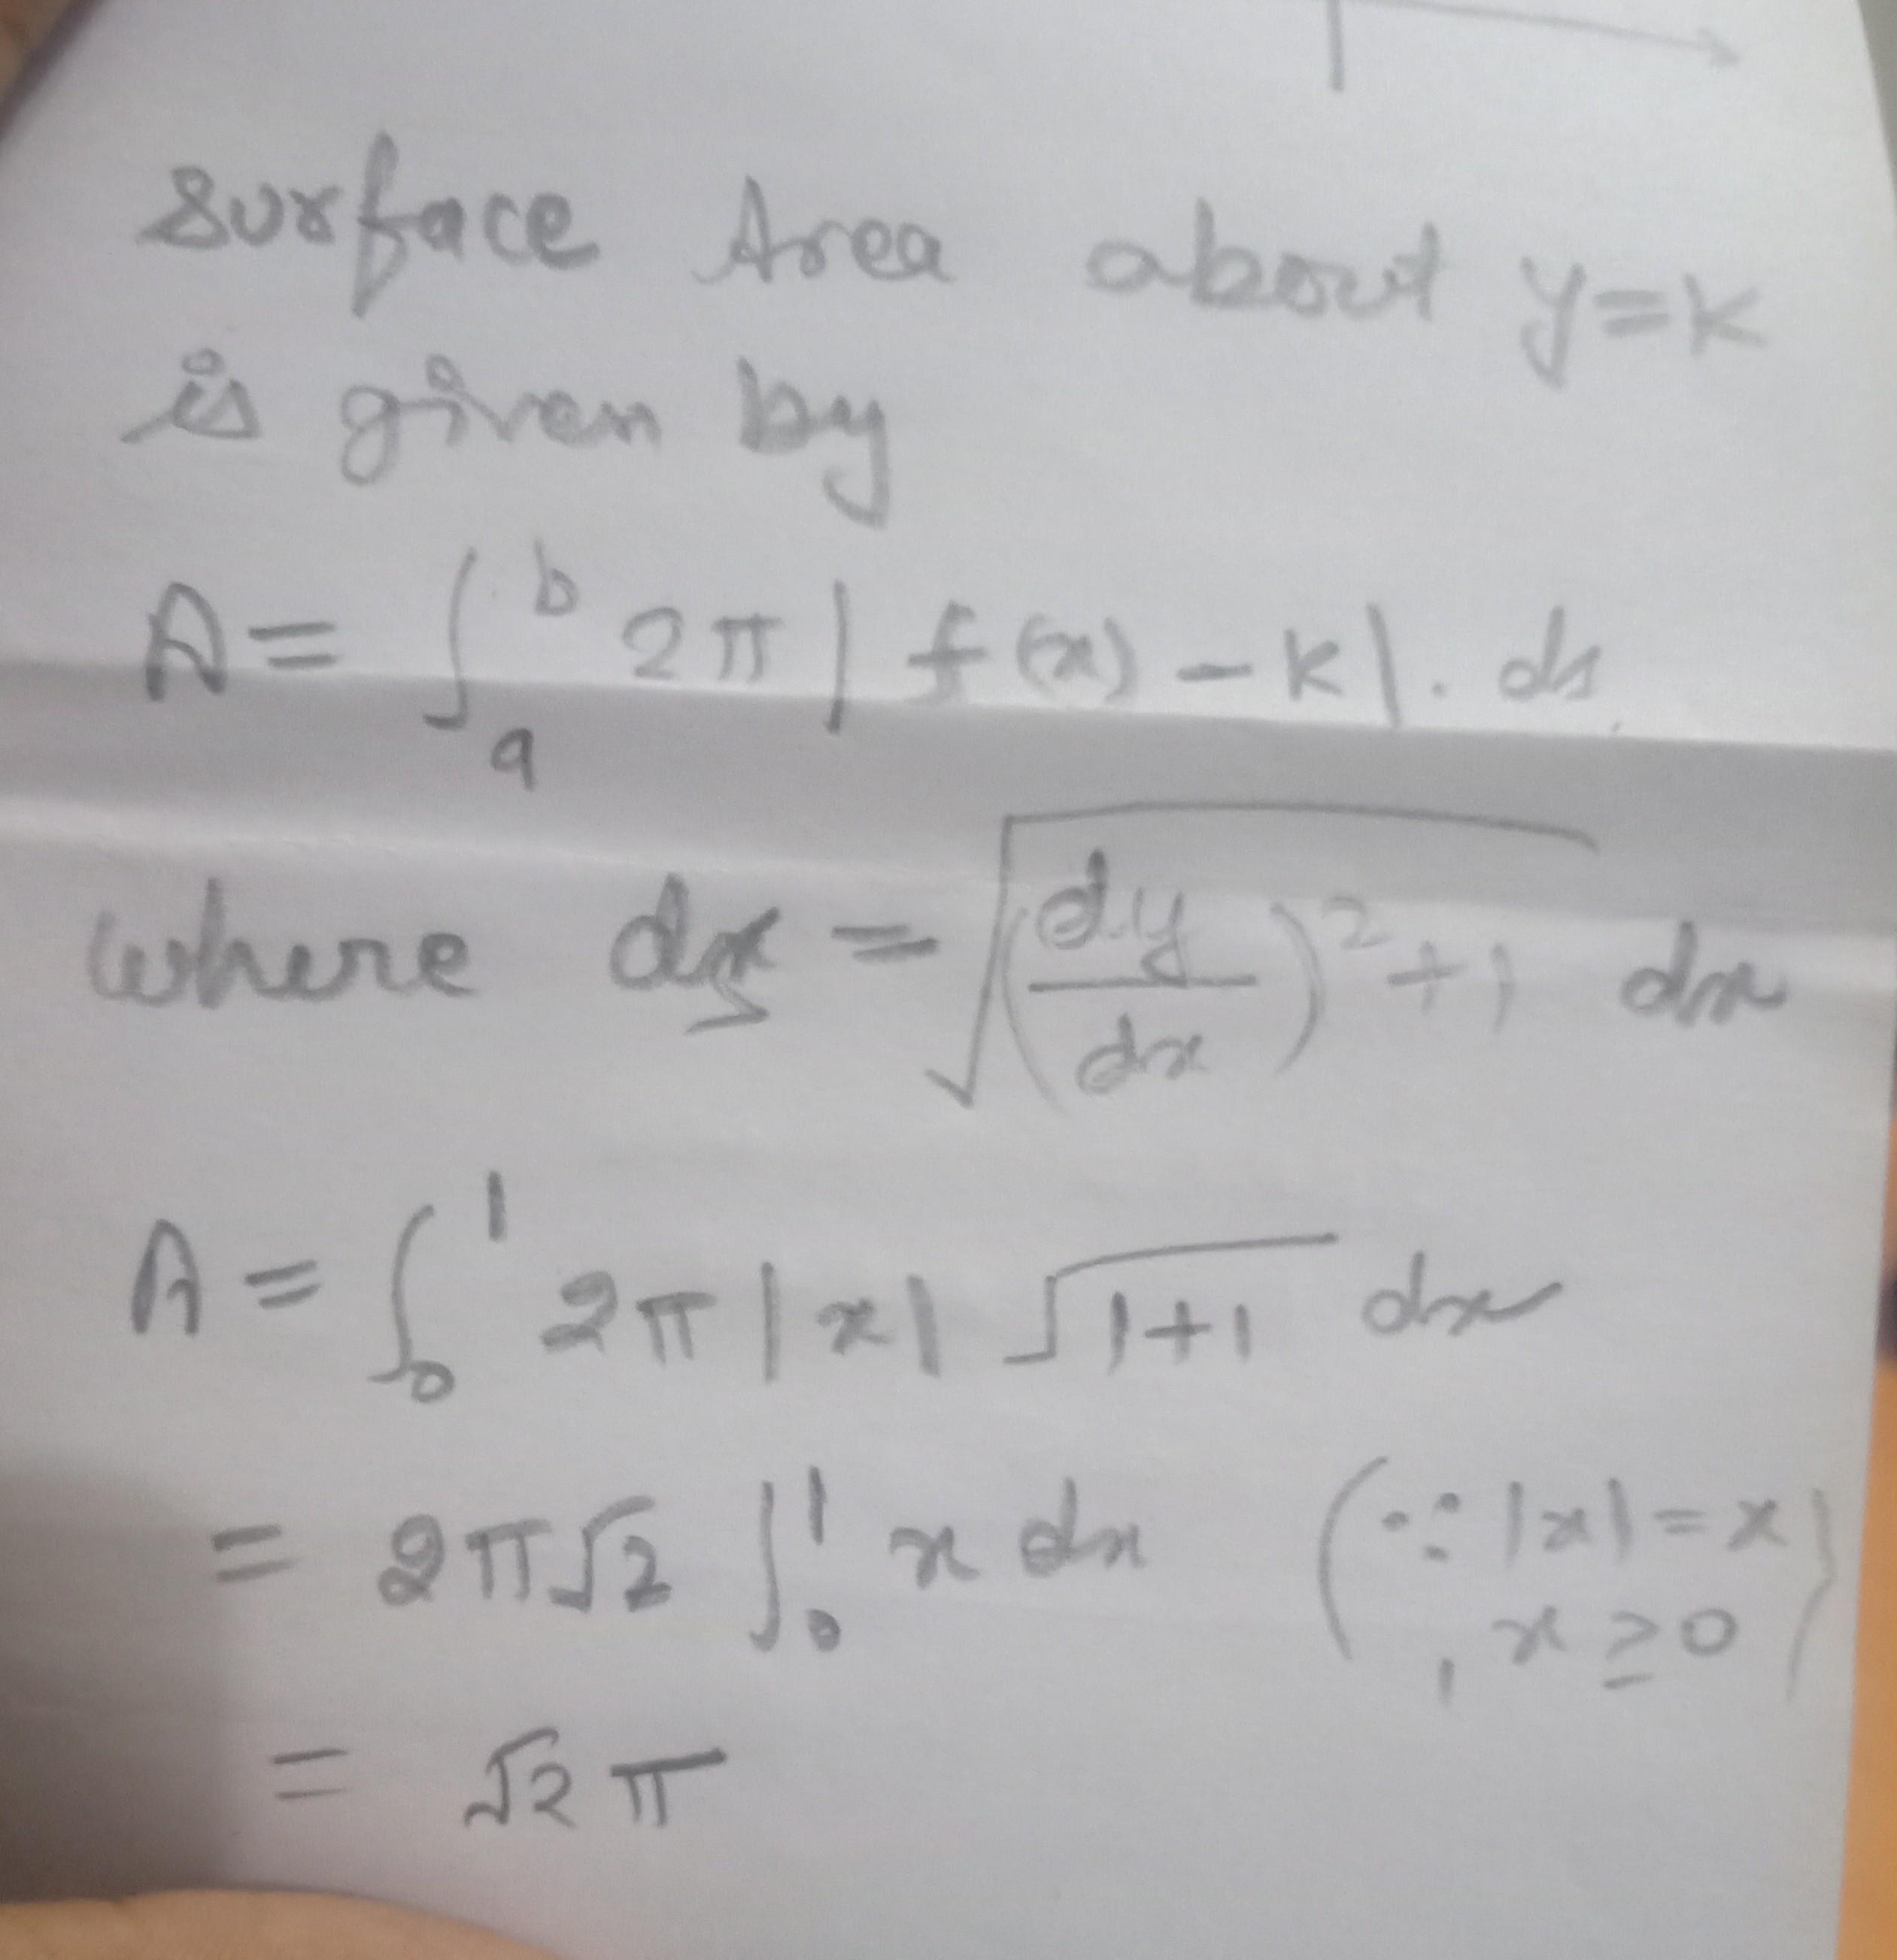 Surface Area about y=k
is given by
A = ∫_a^b 2π | f(x) - k | . ds
where ds = √((dy/dx)² + 1) dx
A = ∫_0^1 2π |x| √1+1 dx
= 2π√2 ∫_0^1 x dx (∵ |x| = x
, x ≥ 0)
= √2 π